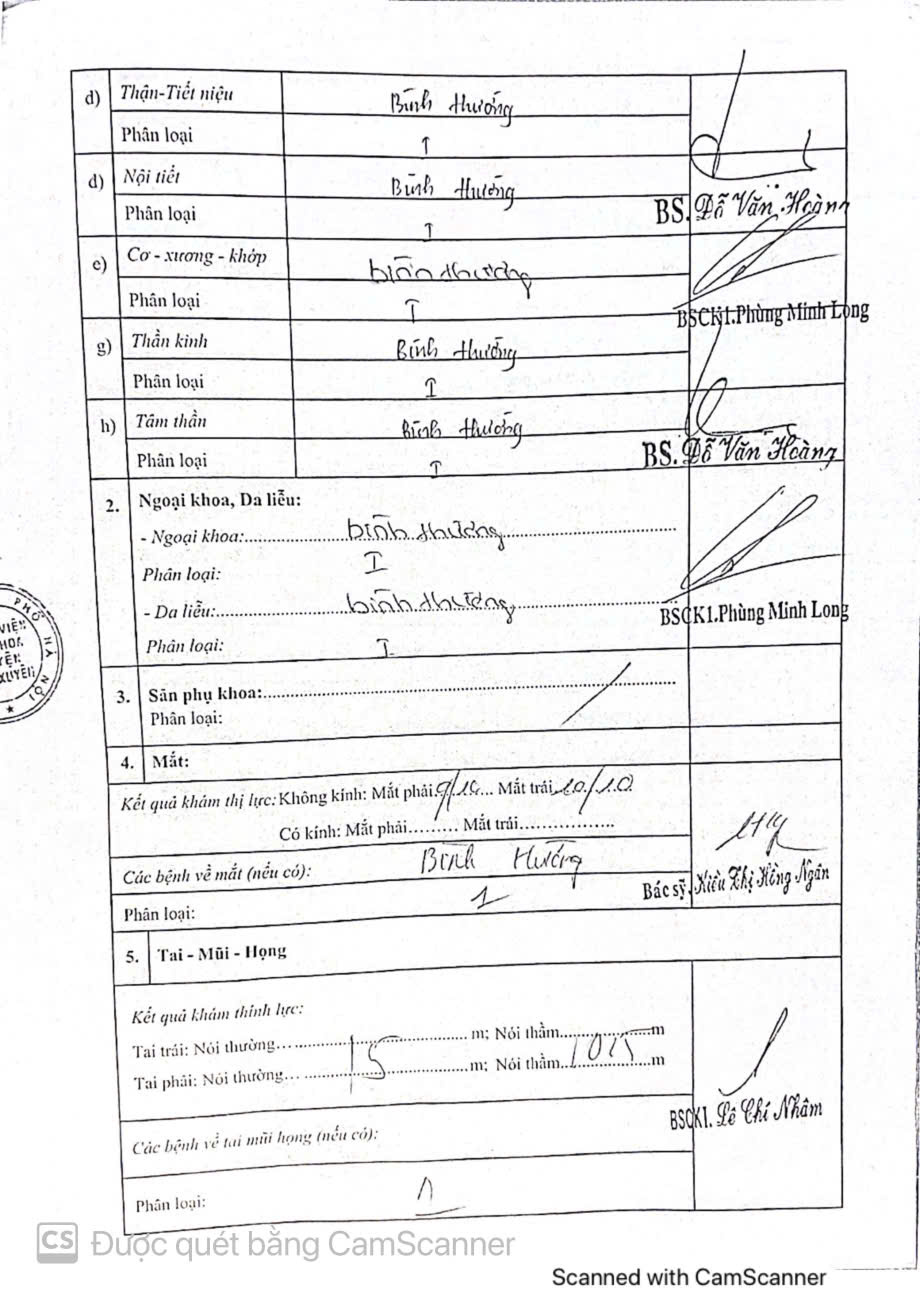 d) Thận-Tiết niệu Bình thường
Phân loại I
đ) Nội tiết Bình thường
Phân loại I
BS. Đỗ Văn Hoàng
e) Cơ - xương - khớp bình thường
Phân loại I
BSCK1.Phùng Minh Long
g) Thần kinh Bình thường
Phân loại I
h) Tâm thần Bình thường
Phân loại I
BS. Đỗ Văn Hoàng
2. Ngoại khoa, Da liễu:
- Ngoại khoa:.....bình thường.....
Phân loại: I
- Da liễu:.....bình thường.....
BSCK1.Phùng Minh Long
Phân loại: I
3. Sản phụ khoa:.....
Phân loại:
4. Mắt:
Kết quả khám thị lực: Không kính: Mắt phải 9/10... Mắt trái 10/10
Có kính: Mắt phải......... Mắt trái.................
Các bệnh về mắt (nếu có): Bình thường
Bác sỹ. Kiều Thị Hồng Ngân
Phân loại: 1
5. Tai - Mũi - Họng
Kết quả khám thính lực:
Tai trái: Nói thường.....m; Nói thầm.....m
Tai phải: Nói thường... 5 .....m; Nói thầm... 0,5 m
BSCKI. Lê Chí Nhâm
Các bệnh về tai mũi họng (nếu có):
Phân loại: 1
PHỐ HÀ NỘI
VIỆN
HOA
YỆN
XUYÊN
CS Được quét bằng CamScanner
Scanned with CamScanner